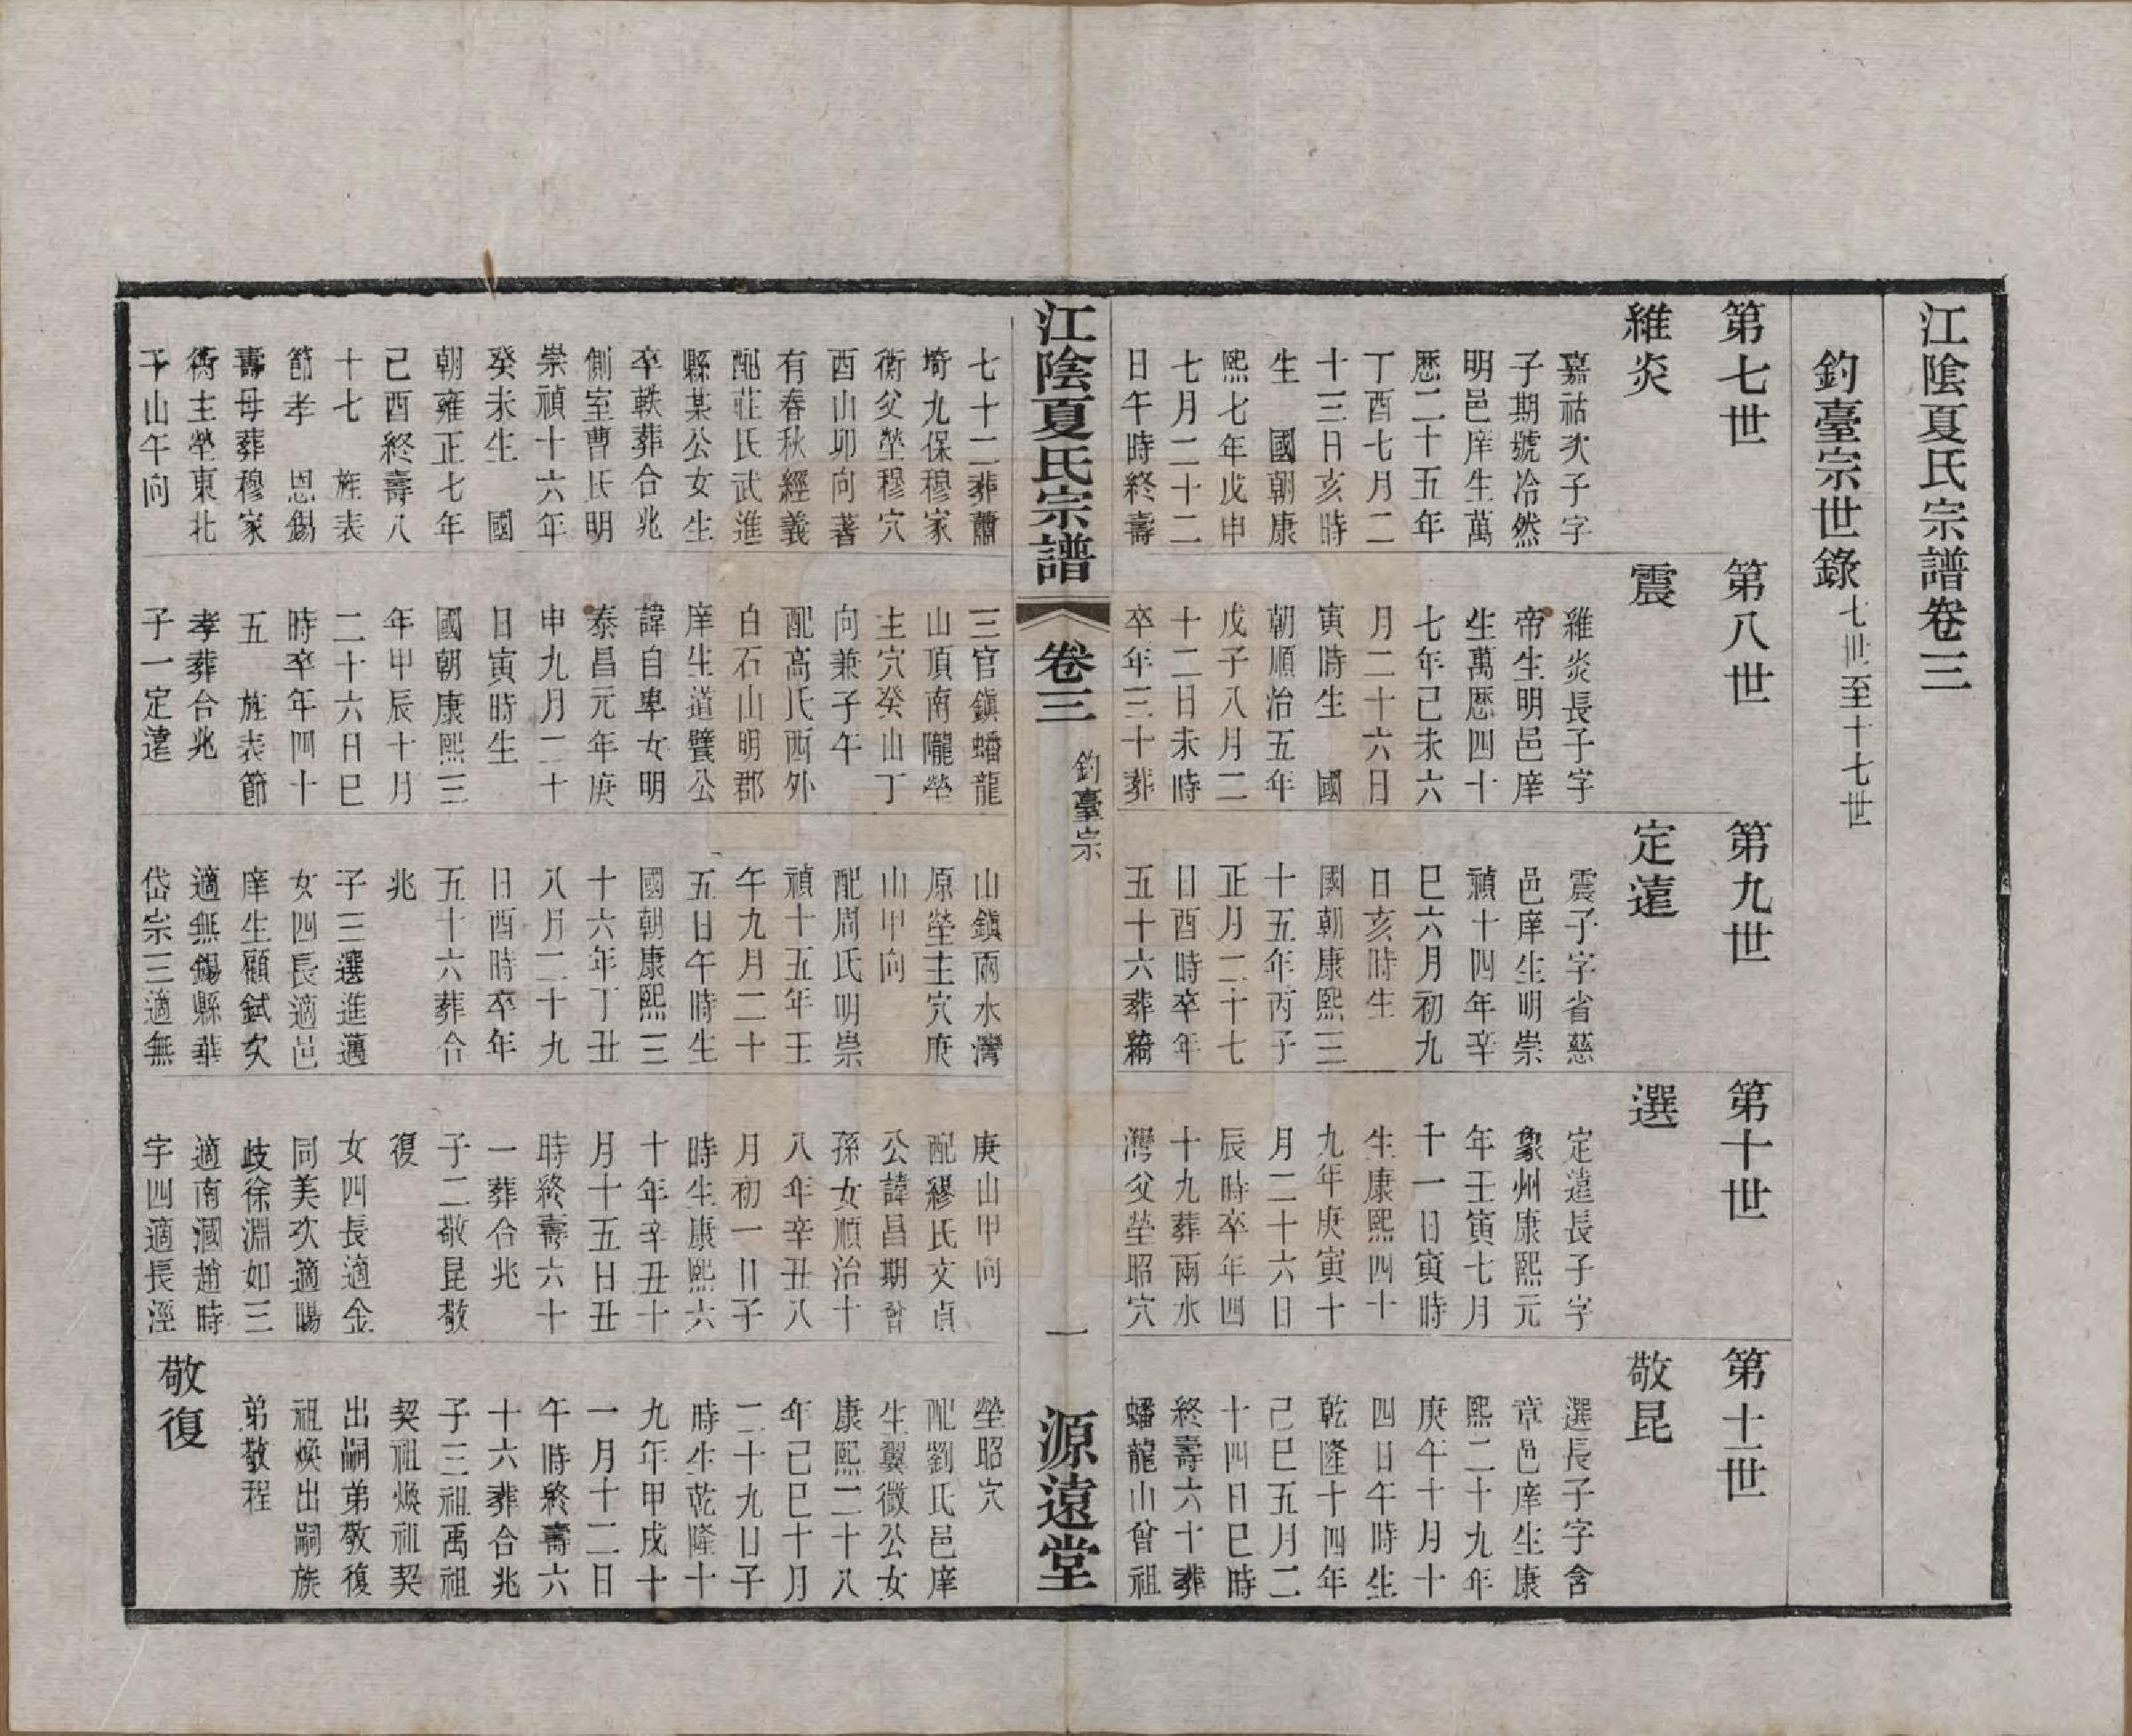 江陰夏氏宗譜卷三
釣臺宗世錄七世至十七世
第七世
維炎
嘉祜次子字
子期號冷然
明邑庠生萬
歷二十五年
丁酉七月二
十三日亥時
生 國朝康
熙七年戊申
七月二十二
日午時終壽
七十二葬蕭
埼九保穆家
衖父塋穆穴
酉山卯向著
有春秋經義
配莊氏武進
縣某公女生
卒軼葬合兆
側室曹氏明
崇禎十六年
癸未生 國
朝雍正七年
己酉終壽八
十七 旌表
節孝 恩錫
壽母葬穆家
衖主塋東北
子山午向
第八世
震
維炎長子字
帝生明邑庠
生萬歷四十
七年己未六
月二十六日
寅時生 國
朝順治五年
戊子八月二
十二日未時
卒年三十葬
三官鎮蟠龍
山頂南隴塋
主穴癸山丁
向兼子午
配高氏西外
白石山明郡
庠生道甓公
諱自卑女明
泰昌元年庚
申九月二十
日寅時生
國朝康熙三
年甲辰十月
二十六日巳
時卒年四十
五 旌表節
孝葬合兆
子一定遠
第九世
定遠
震子字省慈
邑庠生明崇
禎十四年辛
巳六月初九
日亥時生
國朝康熙三
十五年丙子
正月二十七
日酉時卒年
五十六葬綺
山鎮兩水灣
原塋主穴庚
山甲向
配周氏明崇
禎十五年壬
午九月二十
五日午時生
國朝康熙三
十六年丁丑
八月二十九
日酉時卒年
五十六葬合
兆
子三選進邁
女四長適邑
庠生顧鉽次
適無錫縣華
岱宗三適無
第十世
選
定遠長子字
象州康熙元
年壬寅七月
十一日寅時
生康熙四十
九年庚寅十
月二十六日
辰時卒年四
十九葬兩水
灣父塋昭穴
庚山甲向
配繆氏文貞
公諱昌期曾
孫女順治十
八年辛丑八
月初一日子
時生康熙六
十年辛丑十
月十五日丑
時終壽六十
一葬合兆
子二敬昆敬
復
女四長適金
同美次適暘
歧徐淵如三
適南漍趙時
宇四適長涇
第十一世
敬昆
選長子字含
章邑庠生康
熙二十九年
庚午十月十
四日午時生
乾隆十四年
己巳五月二
十四日巳時
終壽六十葬
蟠龍山曾祖
塋昭穴
配劉氏邑庠
生翼微公女
康熙二十八
年己巳十月
二十九日子
時生乾隆十
九年甲戌十
一月十二日
午時終壽六
十六葬合兆
子三祖禹祖
契祖煥祖契
出嗣弟敬復
祖煥出嗣族
弟敬程
敬復
江陰夏氏宗譜 卷三 釣臺宗 一 源遠堂